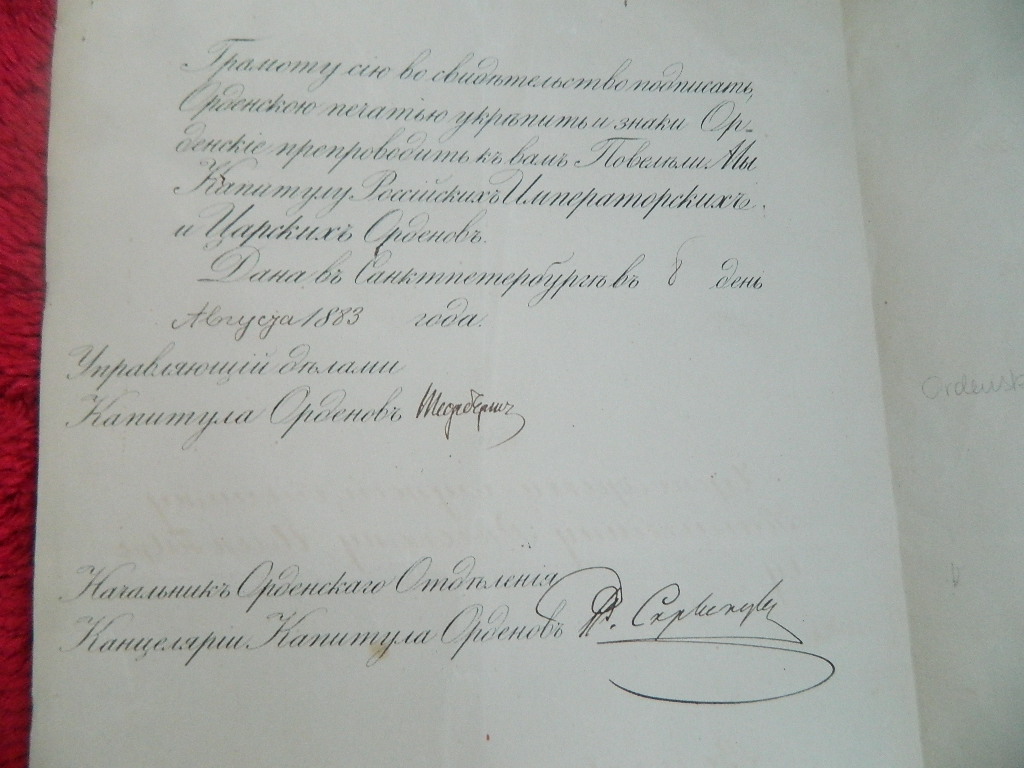 Грамоту сію во свидѣтельство подписать,
Орденскою печатью укрѣпить и знаки Ор-
денскіе препроводить къ вамъ Повелѣли Мы
Капитулу Россійскихъ Императорскихъ
и Царскихъ Орденовъ.
Дана въ Санктпетербургѣ въ 8 день
Августа 1883 года.
Управляющій дѣлами
Капитула Орденовъ
Ordensk
Начальникъ Орденскаго Отдѣленія
Канцеляріи Капитула Орденовъ